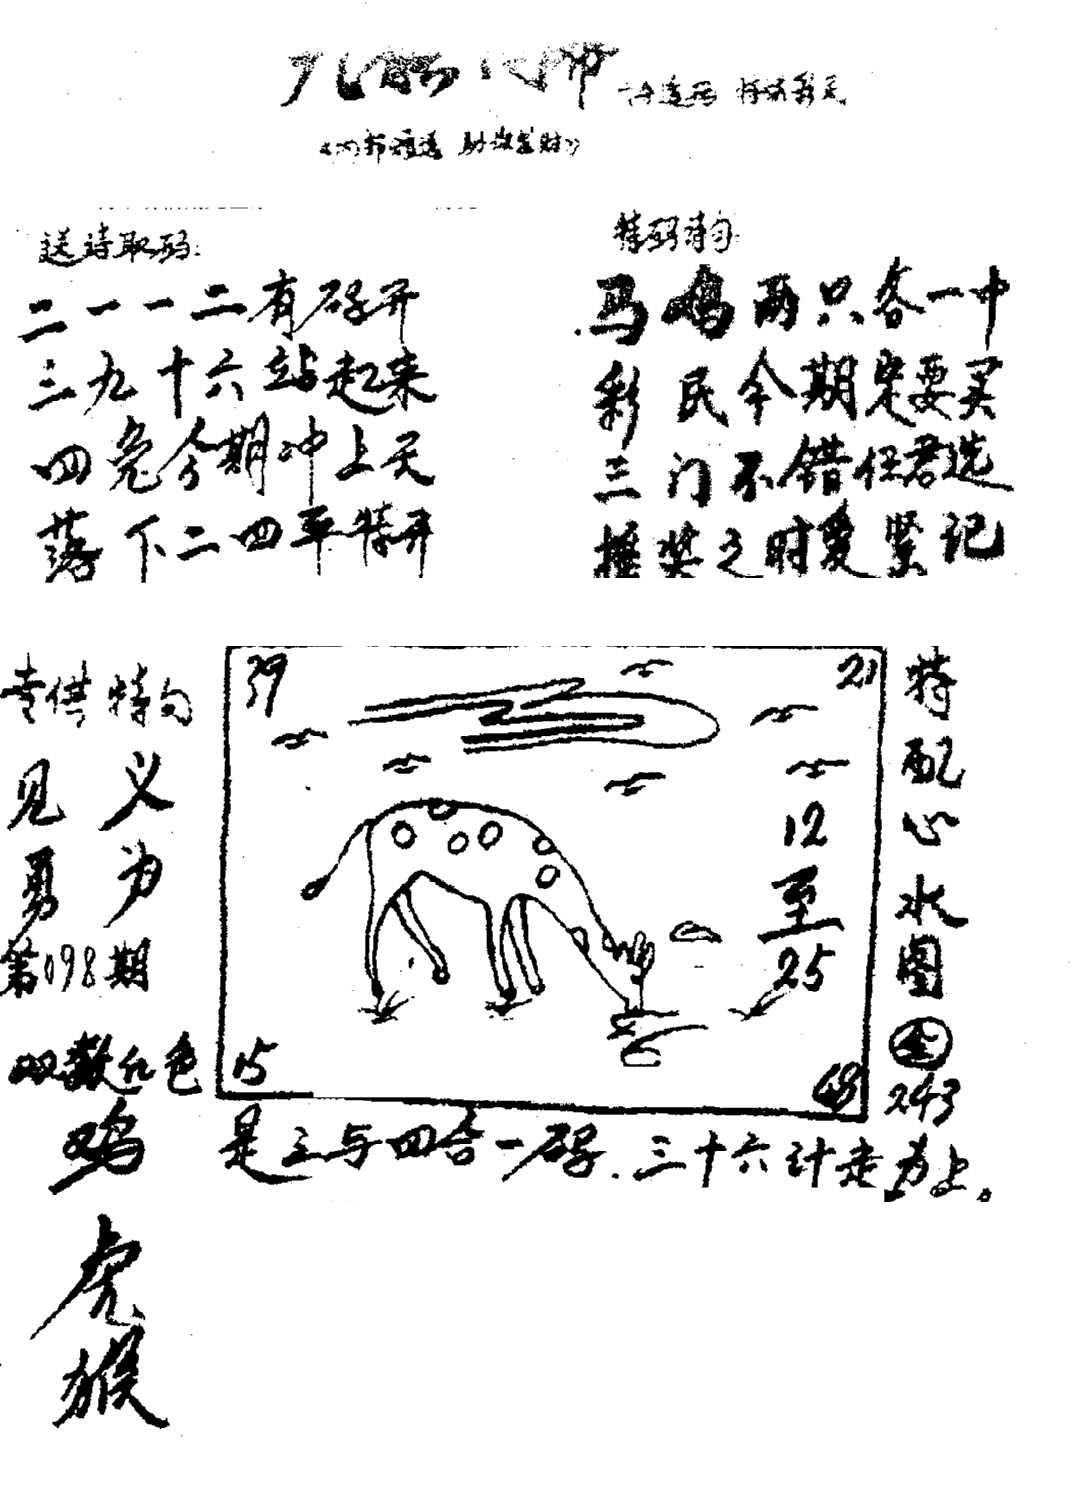 送诗取码:
二一一二有码开
三九十六站起来
四兔今期冲上天
落下二四平特开
特码诗句:
马鸡两只各一中
彩民今期定要买
三门不错任君选
摇奖之时要紧记
专供特句
见义
勇为
第098期
双数红色
鸡
虎
猴
39
21
12
至
25
15
48
特
配
心
水
图
金
243
是三与四合一码.三十六计走为上。